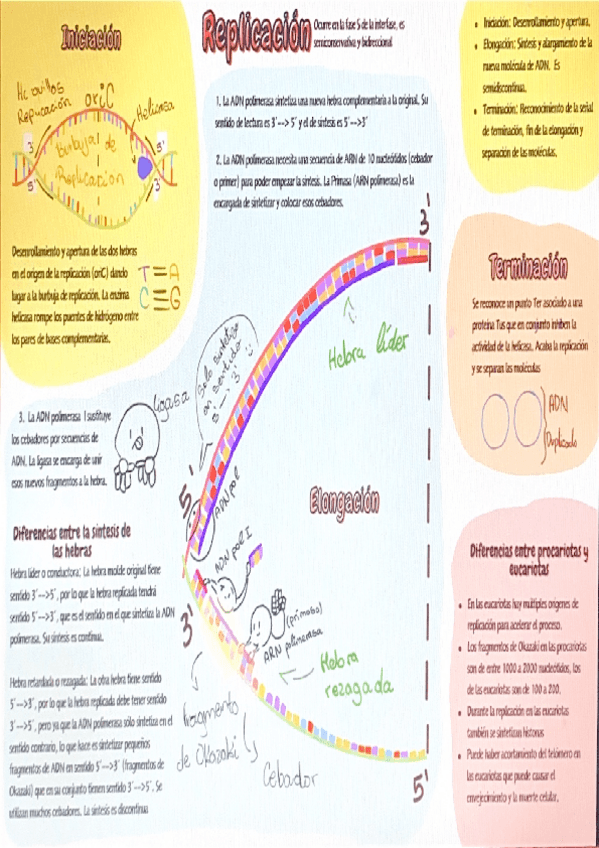 Iniciación
Replicación
Ocurre en la fase S de la interfase, es
semiconservativa y bidireccional
Iniciación: Desenrollamiento y apertura.
Elongación: Síntesis y alargamiento de la
nueva molécula de ADN. Es
semidiscontinua.
Terminación: Reconocimiento de la señal
de terminación, fin de la elongación y
separación de las moléculas.
Replicación
oriC
Helicasa
Burbuja de
Replicación
3'
5'
5'
3'
Desenrollamiento y apertura de las dos hebras
en el origen de la replicación (oriC) dando
lugar a la burbuja de replicación. La enzima
helicasa rompe los puentes de hidrógeno entre
los pares de bases complementarias.
T = A
C ≡ G
1. La ADN polimerasa sintetiza una nueva hebra complementaria a la original. Su
sentido de lectura es 3´--> 5´ y el de síntesis es 5´-->3´
2. La ADN polimerasa necesita una secuencia de ARN de 10 nucleótidos (cebador
o primer) para poder empezar la síntesis. La Primasa (ARN polimerasa) es la
encargada de sintetizar y colocar esos cebadores.
3'
Hebra líder
Solo sintetizo
en sentido
5' → 3'
Terminación
Se reconoce un punto Ter asociado a una
proteína Tus que en conjunto inhiben la
actividad de la helicasa. Acaba la replicación
y se separan las moléculas
ADN
Duplicado
3. La ADN polimerasa I sustituye
los cebadores por secuencias de
ADN. La ligasa se encarga de unir
esos nuevos fragmentos a la hebra.
ligasa
5'
ADN pol
Elongación
ADN pol I
3'
(primasa)
ARN polimerasa
Hebra
rezagada
fragmento
de Okazaki
Cebador
5'
Diferencias entre la síntesis de
las hebras
Hebra líder o conductora: La hebra molde original tiene
sentido 3´-->5´, por lo que la hebra replicada tendrá
sentido 5´-->3´, que es el sentido en el que sintetiza la ADN
polimerasa. Su síntesis es continua.
Hebra retardada o rezagada: La otra hebra tiene sentido
5´-->3´, por lo que la hebra replicada debe tener sentido
3´-->5´, pero ya que la ADN polimerasa sólo sintetiza en el
sentido contrario, lo que hace es sintetizar pequeños
fragmentos de ADN en sentido 5´-->3´ (fragmentos de
Okazaki) que en su conjunto tienen sentido 3´-->5´. Se
utilizan muchos cebadores. La síntesis es discontinua
Diferencias entre procariotas y
eucariotas
En las eucariotas hay múltiples orígenes de
replicación para acelerar el proceso.
Los fragmentos de Okazaki en las procariotas
son de entre 1000 a 2000 nucleótidos, los
de las eucariotas son de 100 a 200.
Durante la replicación en las eucariotas
también se sintetizan histonas
Puede haber acortamiento del telómero en
las eucariotas que puede causar el
envejecimiento y la muerte celular.